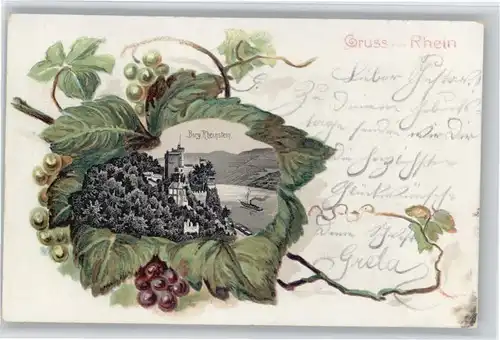 Gruss vom Rhein
Burg Rheinstein
Lieber
Zu Deinem Geburts-
tage senden wir Dir
die herzlichsten
Glückwünsche
Deine
Greta